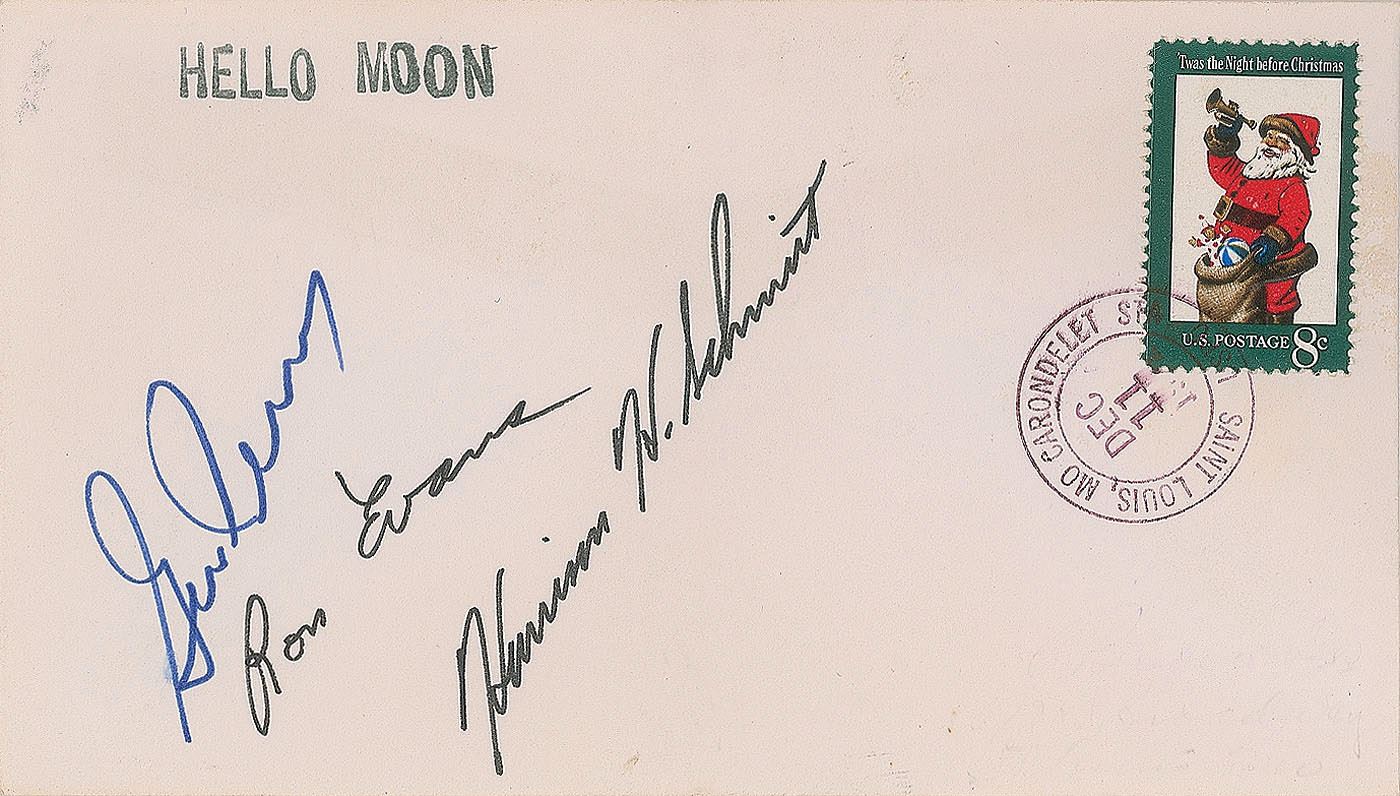 HELLO MOON
'Twas the Night before Christmas
U.S. POSTAGE 8c
CARONDELET STA. SAINT LOUIS, MO
DEC
11
Gene Cernan
Ron Evans
Harrison H. Schmitt